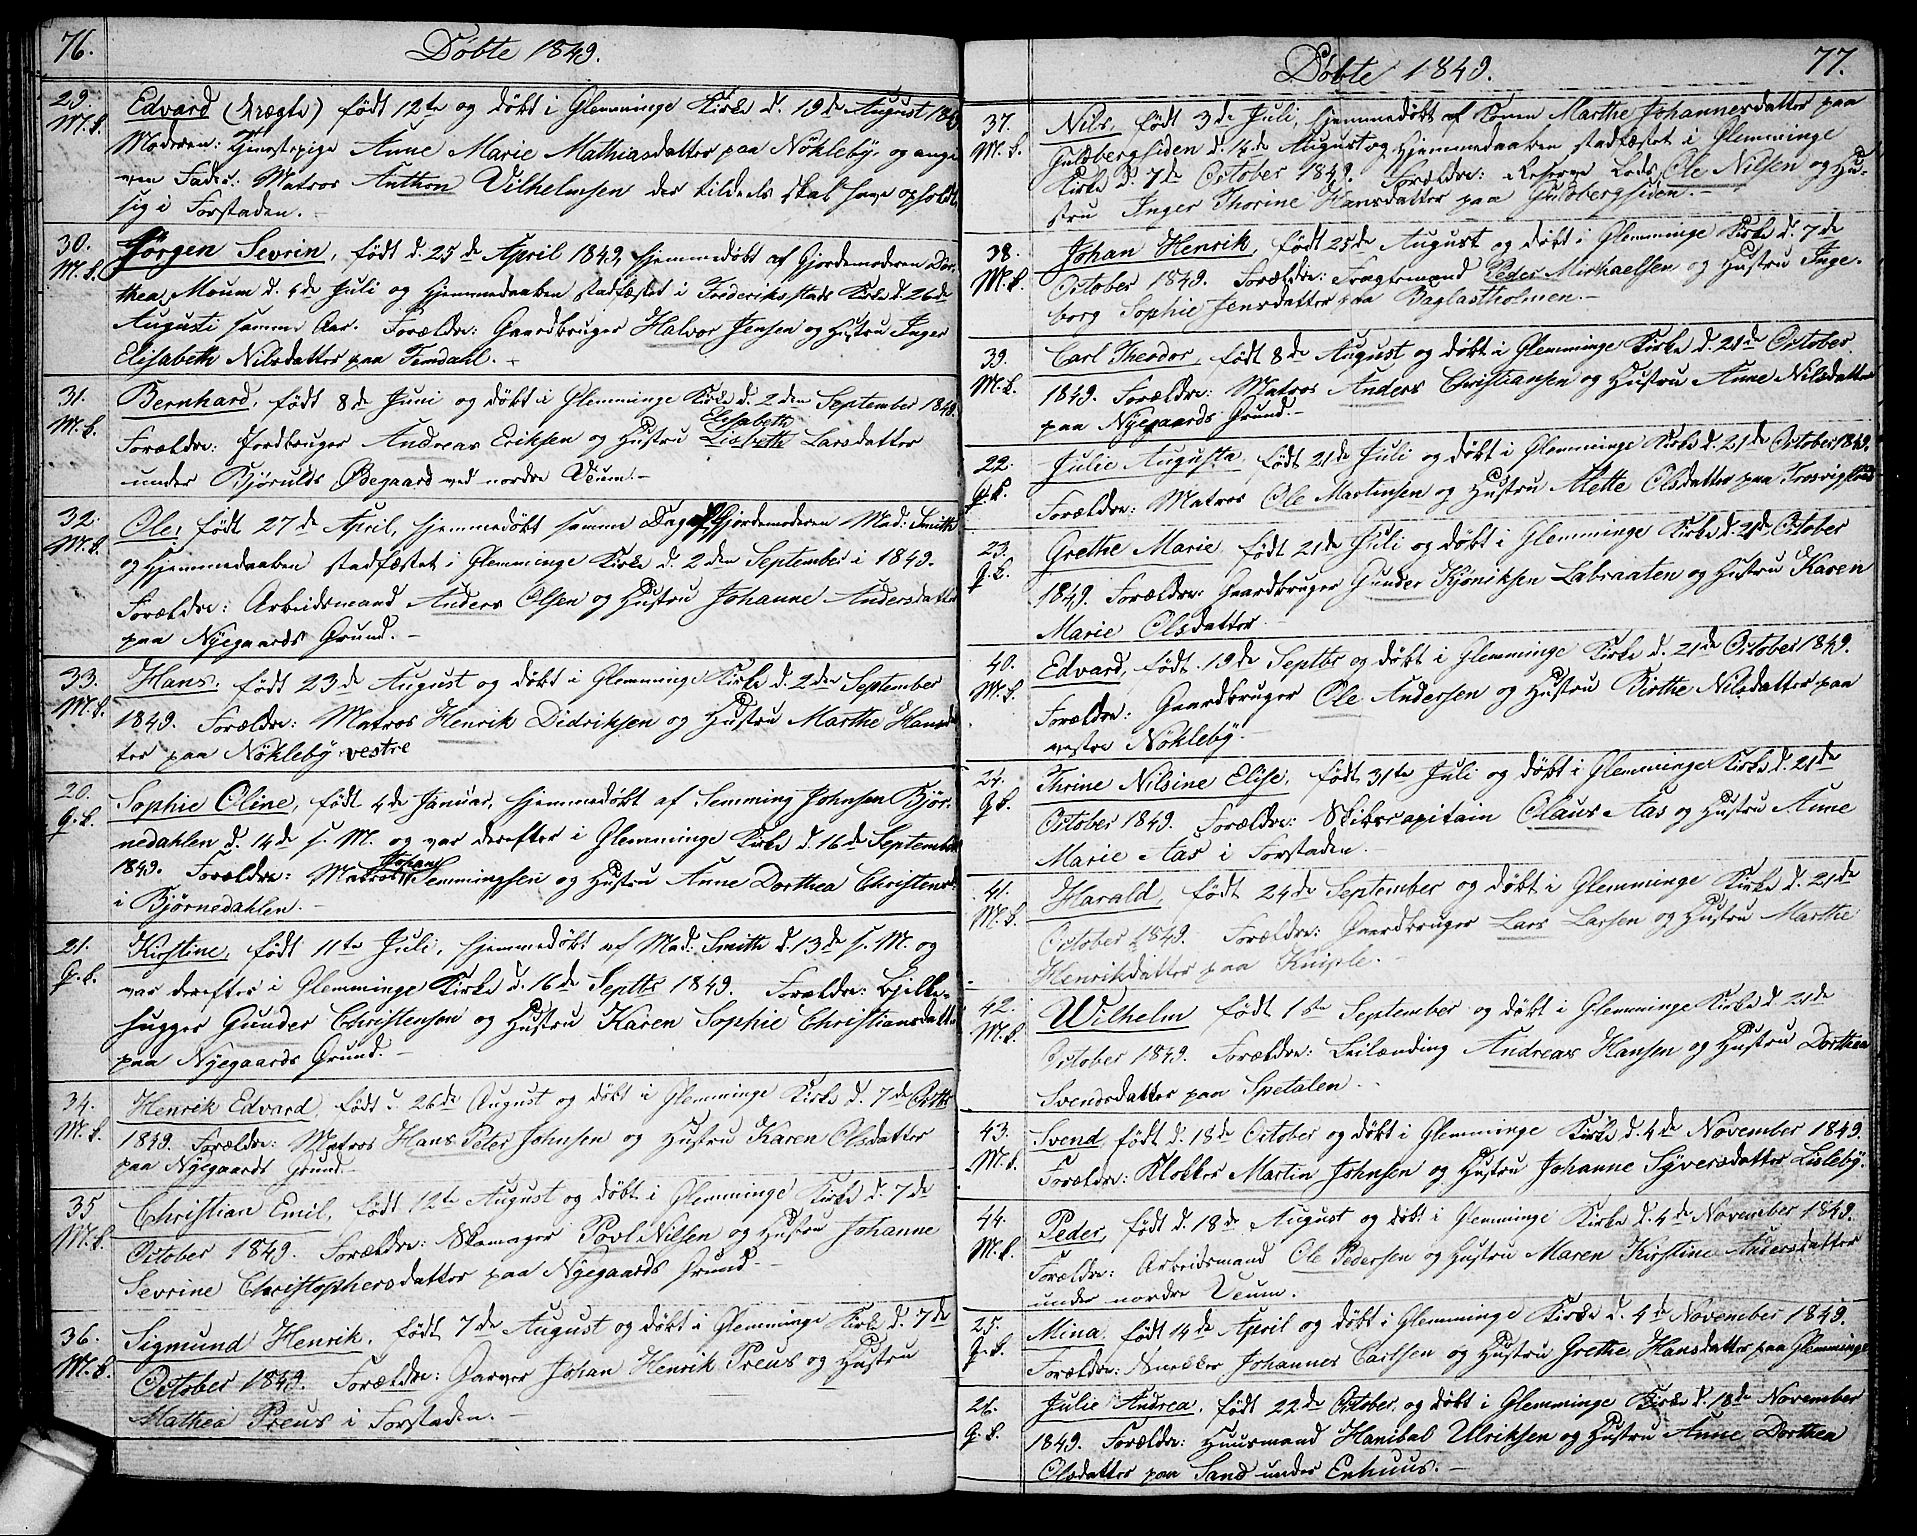 76.
Döbte 1849.
29.
M.k.
Edvard (Uægte) født 12te og døbt i Glemminge Kirke d. 19de August 1849
Moderen: Tjenestepige Anne Marie Mathiasdatter paa Nökleby, og angi-
ven Fader: Matros Anthon Vilhelmsen der tildeels skal have opholdt
sig i Forstaden. -
30.
M.k.
Jörgen Sevrin, født d. 25de April 1849, hjemmedøbt af Gjordemoderen Dor-
thea Moum d. 4de Juli og Hjemmedaaben stadfæstet i Frederikstads Kirke d. 26de
Augusti samme Aar. Forældre: Gaardbruger Halvor Jensen og Hustru Inger
Elisabeth Nilsdatter paa Temdahl. -
31.
M.k.
Bernhard, født 8de Juni og døbt i Glemminge Kirke d. 2den September 1849.
Elisabeth
Forældre: Jordbruger Andreas Eriksen og Hustru Lisbeth Larsdatter
under Bjørulds Ødegaard ved nordre Veum. -
32.
M.k.
Ole, født 27de April, hjemmedøbt samme Dag af Gjordemoderen Mad: Smith
og Hjemmedaaben stadfæstet i Glemminge Kirke d. 2den September i 1849.
Forældre: Arbeidsmand Anders Olsen og Hustru Johanne Andersdatter
paa Nyegaards Grund. -
33.
M.k.
Hans, født 23de August og døbt i Glemminge Kirke d. 2den September
1849. Forældre: Matros Henrik Didriksen og Hustru Marthe Hansdat-
ter paa Nökleby vestre
20.
Q.k.
Sophie Oline, født 4de Januar, hjemmedøbt af Semming Johnsen Bjør-
nedahlen d. 14de s. M. og var derefter i Glemminge Kirke d. 16de September
Johan
1849. Forældre: Matros Semmingsen og Hustru Anne Dorthea Christensd.
i Bjørnedahlen. -
21.
Q.k.
Kirstine, født 11te Juli, hjemmedøbt af Mad: Smith d. 13de s. M. og
var derefter i Glemminge Kirke d. 16de Septbr 1849. Forældre: Bjelke-
hugger Gunder Christensen og Hustru Karen Sophie Christiansdatter
paa Nyegaards Grund. -
34.
M.k.
Henrik Edvard, født d. 26de August og døbt i Glemminge Kirke d. 7de Octbr
1849. Forældre: Matros Hans Peter Johnsen og Hustru Karen Olsdatter
paa Nyegaards Grund.
35
M.k.
Christian Emil, født 12te August og døbt i Glemminge Kirke d. 7de
October 1849. Forældre: Skomager Povl Nilsen og Hustru Johanne
Sevrine Christophersdatter paa Nyegaards Grund. -
36.
M.k.
Sigmund Henrik, født 7de August og døbt i Glemminge Kirke d. 7de
October 1849. Forældre: Garver Johan Henrik Preus og Hustru
Mathea Preus i Forstaden. -
77.
Döbte 1849.
37.
M.k.
Nils, født 3de Juli, hjemmedøbt af Konen Marthe Johannesdatter paa
Guldbergsiden d. 14de August og Hjemmedaaben stadfæstet i Glemminge
Kirke d. 7de October 1849. Forældre: Reserve Lods Ole Nilsen og Hu-
stru Inger Thorine Hansdatter paa Guldbergsiden. -
38.
M.k.
Johan Henrik, født 25de August og døbt i Glemminge Kirke d. 7de
October 1849. Forældre: Fragtemand Peder Michaelsen og Hustru Inge-
borg Sophie Jensdatter paa Baglastholmen. -
39.
M.k.
Carl Theodor, født 8de August og døbt i Glemminge Kirke d. 21de October
1849. Forældre: Matros Anders Christiansen og Hustru Anne Nilsdatter
paa Nyegaards Grund. -
22.
Q.k.
Julie Augusta, født 21de Juli og døbt i Glemminge Kirke d. 21de October 1849.
Forældre: Matros Ole Martinsen og Hustru Mette Olsdatter paa Trosvig
23.
Q.k.
Grethe Marie født 21de Juli og døbt i Glemminge Kirke d. 21de October
1849. Forældre: Gaardbruger Gunder Kjöniksen Labraaten og Hustru Karen
Marie Olsdatter.
40.
M.k.
Edvard, født 19de Septbr og døbt i Glemminge Kirke d. 21de October 1849.
Forældre: Gaardbruger Ole Andersen og Hustru Birthe Nilsdatter paa
vestre Nökleby. -
24.
Q.k.
Thrine Nilsine Elise, født 31te Juli og døbt i Glemminge Kirke d. 21de
October 1849. Forældre: Skibscapitain Claus Aas og Hustru Anne
Marie Aas i Forstaden. -
41.
M.k.
Harald, født 24de September og døbt i Glemminge Kirke d. 21de
October 1849. Forældre: Gaardbruger Lars Larsen og Hustru Marthe
Henriksdatter paa Kniple. -
42.
M.k.
Wilhelm født 1ste September og døbt i Glemminge Kirke d. 21de
October 1849. Forældre: Leilænding Andreas Hansen og Hustru Dorthea
Svendsdatter paa Spetalen. -
43.
M.k.
Svend, født d. 18de October og døbt i Glemminge Kirke d. 4de November 1849.
Forældre: Klokker Martin Johnsen og Hustru Johanne Syversdatter Lisleby.
44.
M.k.
Peder, født d. 18de August og døbt i Glemminge Kirke d. 4de November 1849.
Forældre: Arbeidsmand Ole Pedersen og Hustru Maren Kirstine Andersdatter
under nordre Veum.
25.
Q.k.
Mina, født 14de April og døbt i Glemminge Kirke d. 4de November 1849.
Forældre: Snekker Johannes Carlsen og Hustru Grethe Hansdatter paa Glemminge
26.
Q.k.
Julie Andrea, født 22de October, og døbt i Glemminge Kirke d. 18de November
1849. Forældre: Huusmand Hanibal Ulriksen og Hustru Anne Dorthea
Olsdatter paa Sand under Enhuus. -